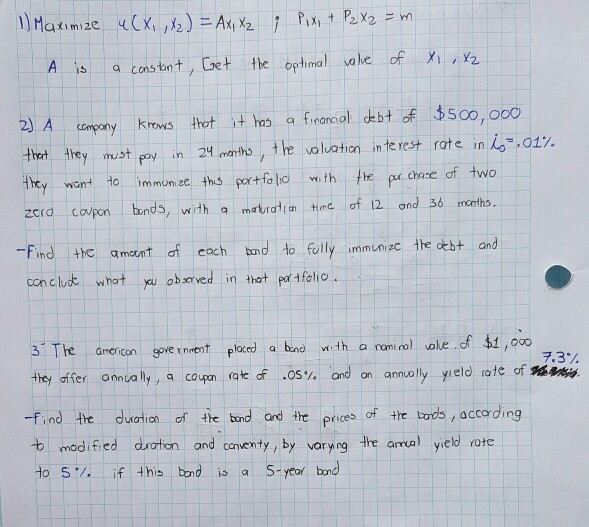 1) Maximize u(X₁,X₂) = AX₁X₂ ; P₁X₁ + P₂X₂ = m
A is a constant, Get the optimal value of X₁, X₂
2) A company knows that it has a financial debt of $500,000
that they must pay in 24 months, the valuation interest rate in i₀=.01%
they want to immunize this portfolio with the purchase of two
zero coupon bonds, with a maturation time of 12 and 36 months.
-Find the amount of each bond to fully immunize the debt and
conclude what you observed in that portfolio.
3- The american government placed a bond with a nominal value of $1,000
they offer annually, a coupon rate of .05% and an annually yield rate of 7.3%
-Find the duration of the bond and the prices of the bonds, according
to modified duration and convexity, by varying the annual yield rate
to 5% if this bond is a 5-year bond